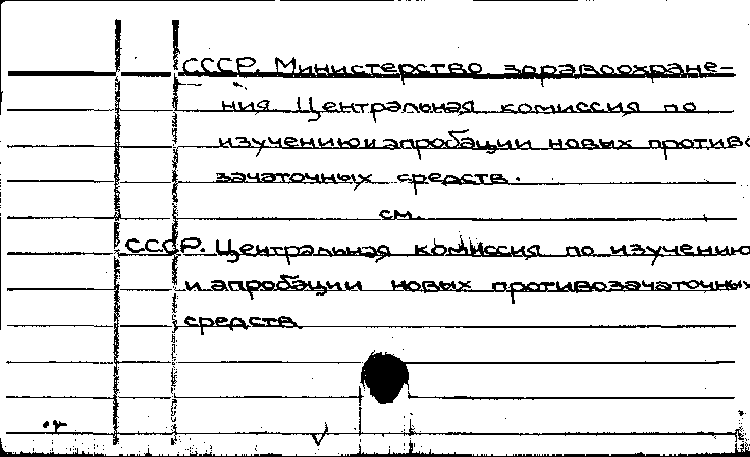 СССР. Министерство здравоохране-
ния Центральная комиссия по
изучению и апробации новых противо
зачаточных средств.
см.
СССР. Центральная комиссия по изучению
и апробации новых противозачаточных
средств.